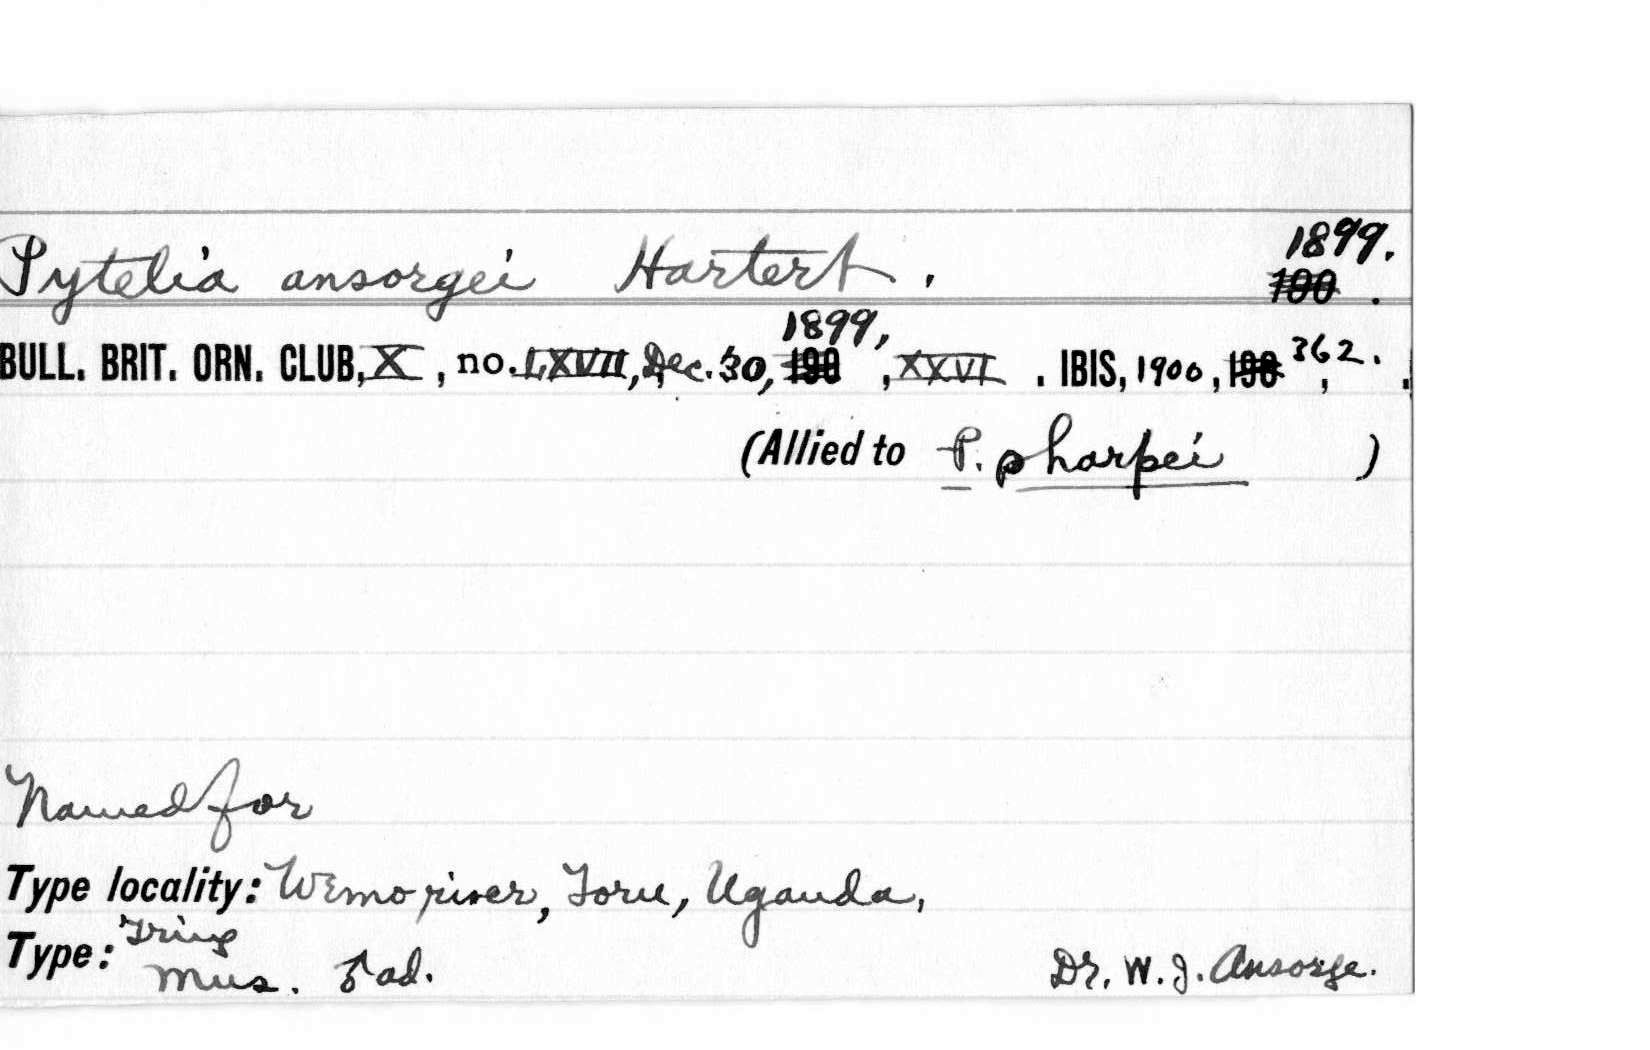 Pytelia ansorgei Hartert. 1899.
190 .
1899,
BULL. BRIT. ORN. CLUB, X , no. LXVII, Dec. 30, 190 , XXVI . IBIS, 1900, 190 , 362. .
(Allied to P. sharpei )
Named for
Type locality: Wemo river, Toru, Uganda,
Type: Tring
Mus. ♂ ad. Dr. W. J. Ansorge.